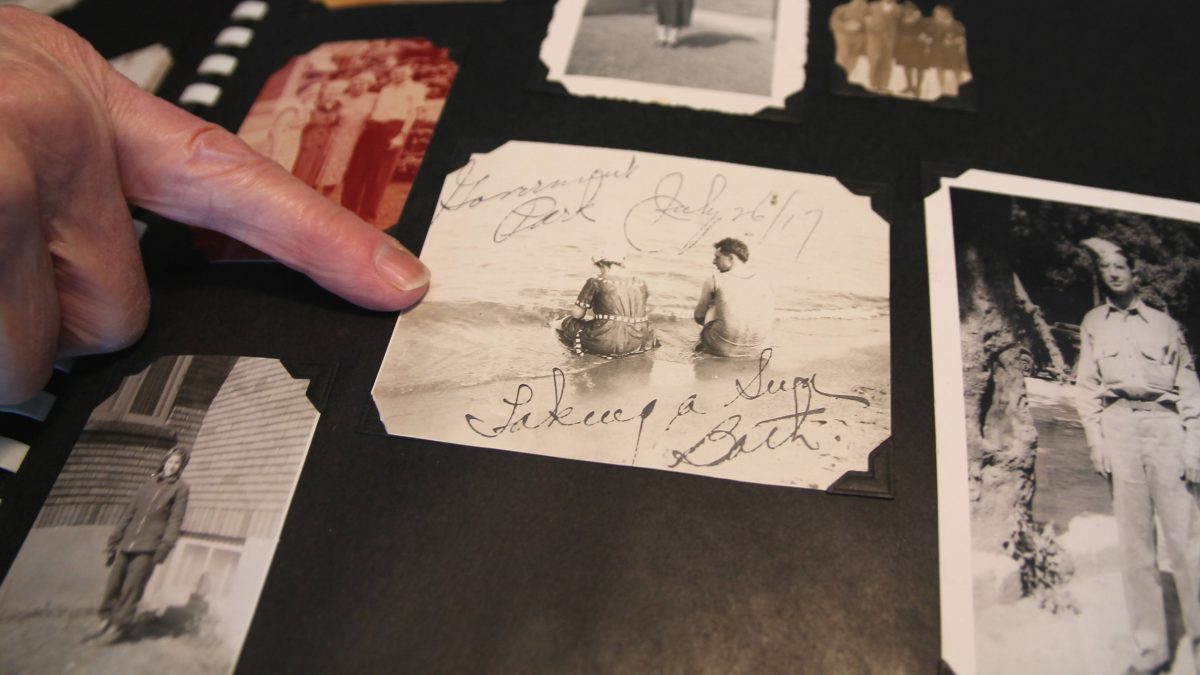 Government
Park
July 26/17
Taking a Sun
Bath.